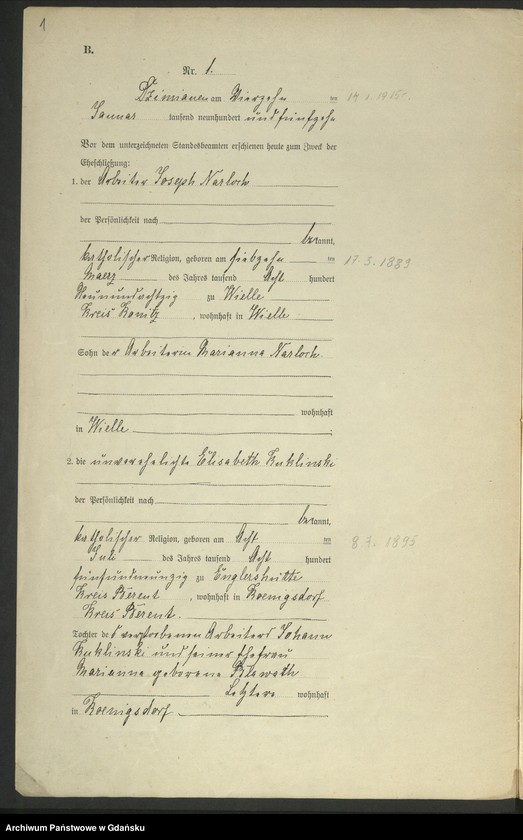 1
B.
Nr. 1.
Dzimianen am Vierzehn ten 14.1.1915r.
Januar tausend neunhundert und fünfzehn
Vor dem unterzeichneten Standesbeamten erschienen heute zum Zweck der
Eheschließung:
1. der Arbeiter Joseph Narloch
der Persönlichkeit nach
bekannt,
katholischer Religion, geboren am siebzehn ten 17.3.1889
Maerz des Jahres tausend Acht hundert
Neunundachtzig zu Wielle
Kreis Konitz, wohnhaft in Wielle
Sohn der Arbeiterin Marianna Narloch
wohnhaft
in Wielle .
2. die unverehelichte Elisabeth Kuklinski
der Persönlichkeit nach
bekannt,
katholischer Religion, geboren am Acht ten 8.7.1895
Juli des Jahres tausend Acht hundert
fünfundneunzig zu Englershütte
Kreis Berent, wohnhaft in Koenigsdorf
Kreis Berent.
Tochter des verstorbenen Arbeiters Johann
Kuklinski und seiner Ehefrau
Marianne geborene
Letztere wohnhaft
in Koenigsdorf
Archiwum Państwowe w Gdańsku